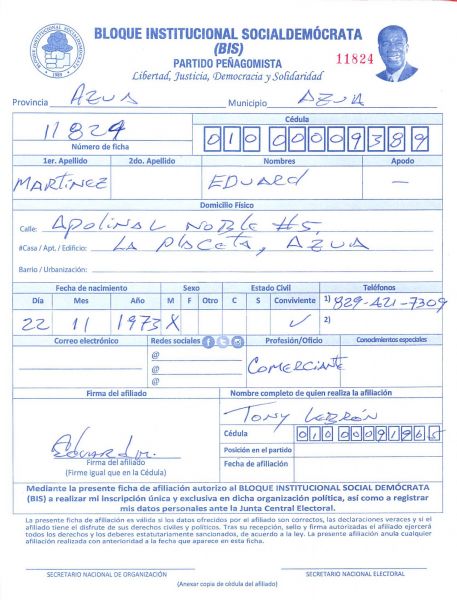 BLOQUE INSTITUCIONAL SOCIALDEMÓCRATA
(BIS)
PARTIDO PEÑAGOMISTA
11824
Libertad, Justicia, Democracia y Solidaridad
BLOQUE INSTITUCIONAL SOCIALDEMÓCRATA
Provincia AZUA Municipio AZUA
11824
Número de ficha
Cédula
010 00009389
1er. Apellido 2do. Apellido Nombres Apodo
MARTÍNEZ EDUARD —
Domicilio Físico
Calle: APOLINAL NOBLE #5,
#Casa / Apt. / Edificio: LA PLACETA, AZUA
Barrio / Urbanización:
Fecha de nacimiento Sexo Estado Civil Teléfonos
Día Mes Año M F Otro C S Conviviente 1) 829-421-7309
22 11 1973 X ✓ 2)
Correo electrónico Redes sociales Profesión/Oficio Conodimientos especiales
@
@
@
COMERCIANTE
Firma del afiliado Nombre completo de quien realiza la afiliación
TONY LEBRÓN
Cédula 010 00091865
Posición en el partido
Fecha de afiliación
Firma del afiliado
(Firme igual que en la Cédula)
Mediante la presente ficha de afiliación autorizo al BLOQUE INSTITUCIONAL SOCIAL DEMÓCRATA
(BIS) a realizar mi inscripción única y exclusiva en dicha organización política, así como a registrar
mis datos personales ante la Junta Central Electoral.
La presente ficha de afiliación es válida si los datos ofrecidos por el afiliado son correctos, las declaraciones veraces y si el
afiliado tiene el disfrute de sus derechos civiles y políticos. Tras su recepción, sello y firma autorizadas el afiliado ejercerá
todos los derechos y los deberes estatutariamente sancionados, de acuerdo a la ley. La presente afiliación anula cualquier
afiliación realizada con anterioridad a la fecha que aparece en esta ficha.
SECRETARIO NACIONAL DE ORGANIZACIÓN SECRETARIO NACIONAL ELECTORAL
(Anexar copia de cédula del afiliado)